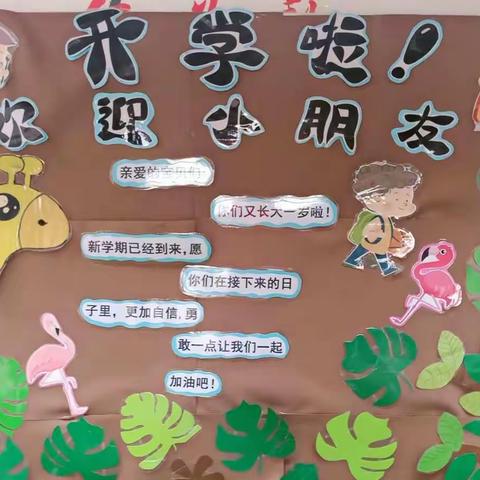 开学啦！
欢迎小朋友
亲爱的宝贝们
你们又长大一岁啦！
新学期已经到来,愿
你们在接下来的日
子里，更加自信,勇
敢一点让我们一起
加油吧！